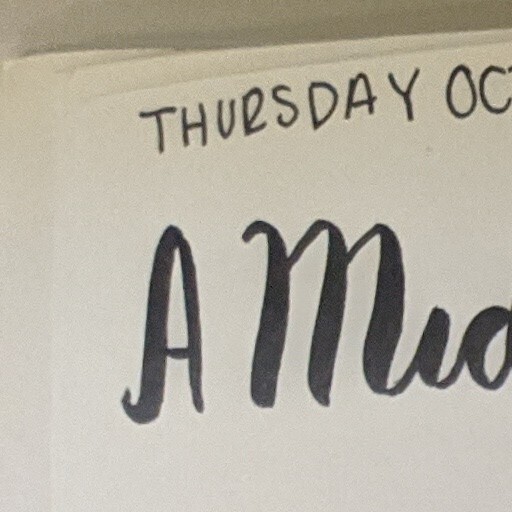 THURSDAY OC
A Mid